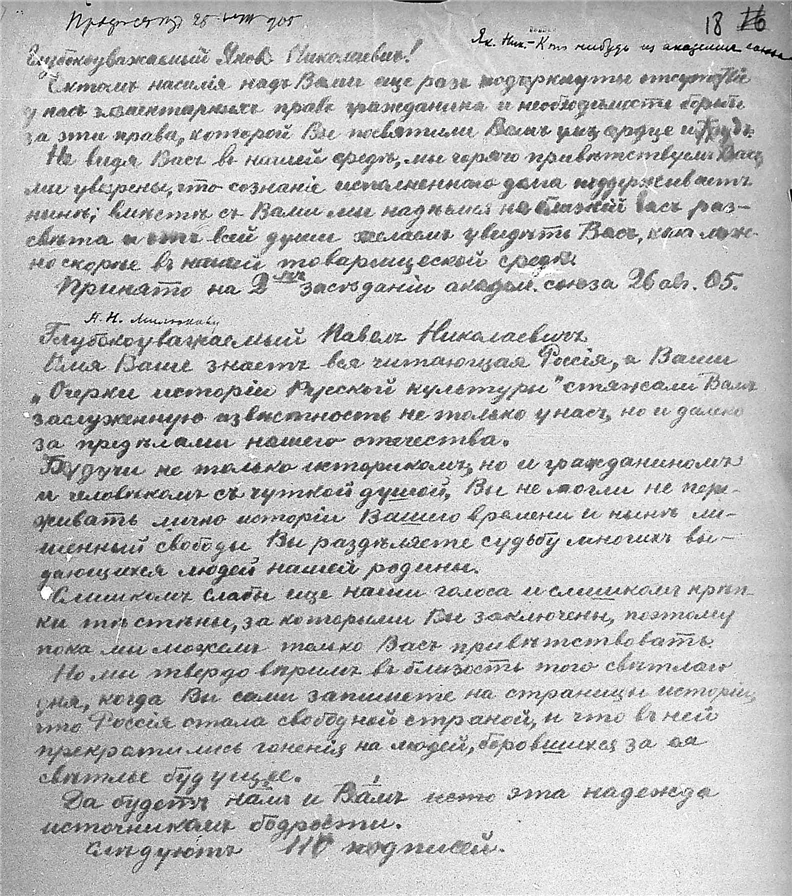 25 905
18 26
Як. Ник. - Кто нибудь из академич. союза
Глубокоуважаемый Яковъ Николаевичъ!
Актомъ насилія надъ Вами еще разъ подчеркнуты отсутствіе
у насъ элементарныхъ правъ гражданина и необходимость борьбы
за эти права, которой Вы посвятили Вашъ умъ, сердце и трудъ.
Не видя Васъ въ нашей средѣ, мы горячо привѣтствуемъ Васъ,
мы уверены, что сознаніе исполненнаго долга поддерживаетъ
нынѣ; вмѣстѣ съ Вами мы надѣемся на близкій часъ раз-
свѣта и отъ всей души желаемъ увидѣть Васъ, какъ мож-
но скорѣе въ нашей товарищеской средѣ.
Принято на 2 засѣданіи академ. союза 26 авг. 05.
П. Н. Милюкову
Глубокоуважаемый Павелъ Николаевичъ
Имя Ваше знаетъ вся читающая Россія, а Ваши
„Очерки исторіи Русской культуры" стяжали Вамъ
заслуженную извѣстность не только у насъ, но и далеко
за предѣлами нашего отечества.
Будучи не только историкомъ, но и гражданиномъ
и человѣкомъ съ чуткой душой, Вы не могли не пере-
живать лично исторіи Вашего времени и нынѣ ли-
шенный свободы Вы раздѣляете судьбу многихъ вы-
дающихся людей нашей родины.
Слишкомъ слабы еще наши голоса и слишкомъ крѣп-
ки тѣ стѣны, за которыми Вы заключены, поэтому
пока мы можемъ только Васъ привѣтствовать.
Но мы твердо вѣримъ въ близость того свѣтлаго
дня, когда Вы сами запишете на страницы исторіи,
что Россія стала свободной страной, и что въ ней
прекратились гоненія на людей, боровшихся за ея
свѣтлое будущее.
Да будетъ намъ и Вамъ эта надежда
источникомъ бодрости.
Слѣдуютъ 110 подписей.